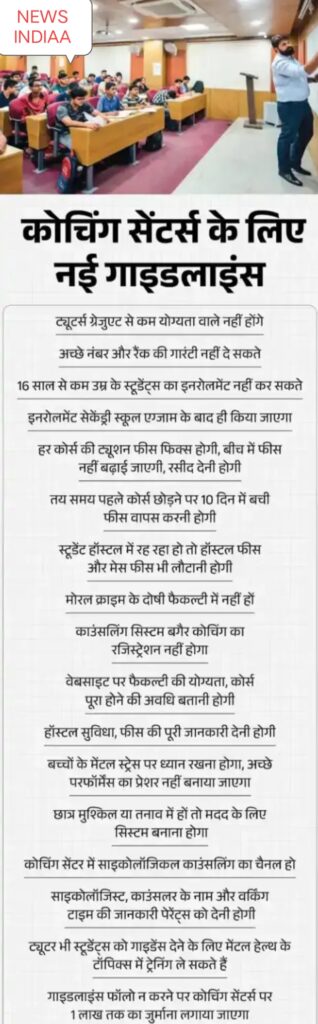 NEWS
INDIAA
कोचिंग सेंटर्स के लिए
नई गाइडलाइंस
ट्यूटर्स ग्रेजुएट से कम योग्यता वाले नहीं होंगे
अच्छे नंबर और रैंक की गारंटी नहीं दे सकते
16 साल से कम उम्र के स्टूडेंट्स का इनरोलमेंट नहीं कर सकते
इनरोलमेंट सेकेंड्री स्कूल एग्जाम के बाद ही किया जाएगा
हर कोर्स की ट्यूशन फीस फिक्स होगी, बीच में फीस
नहीं बढ़ाई जाएगी, रसीद देनी होगी
तय समय पहले कोर्स छोड़ने पर 10 दिन में बची
फीस वापस करनी होगी
स्टूडेंट हॉस्टल में रह रहा हो तो हॉस्टल फीस
और मेस फीस भी लौटानी होगी
मोरल क्राइम के दोषी फैकल्टी में नहीं हों
काउंसलिंग सिस्टम बगैर कोचिंग का
रजिस्ट्रेशन नहीं होगा
वेबसाइट पर फैकल्टी की योग्यता, कोर्स
पूरा होने की अवधि बतानी होगी
हॉस्टल सुविधा, फीस की पूरी जानकारी देनी होगी
बच्चों के मेंटल स्ट्रेस पर ध्यान रखना होगा, अच्छे
परफॉर्मेंस का प्रेशर नहीं बनाया जाएगा
छात्र मुश्किल या तनाव में हों तो मदद के लिए
सिस्टम बनाना होगा
कोचिंग सेंटर में साइकोलॉजिकल काउंसलिंग का चैनल हो
साइकोलॉजिस्ट, काउंसलर के नाम और वर्किंग
टाइम की जानकारी पेरेंट्स को देनी होगी
ट्यूटर भी स्टूडेंट्स को गाइडेंस देने के लिए मेंटल हेल्थ के
टॉपिक्स में ट्रेनिंग ले सकते हैं
गाइडलाइंस फॉलो न करने पर कोचिंग सेंटर्स पर
1 लाख तक का जुर्माना लगाया जाएगा